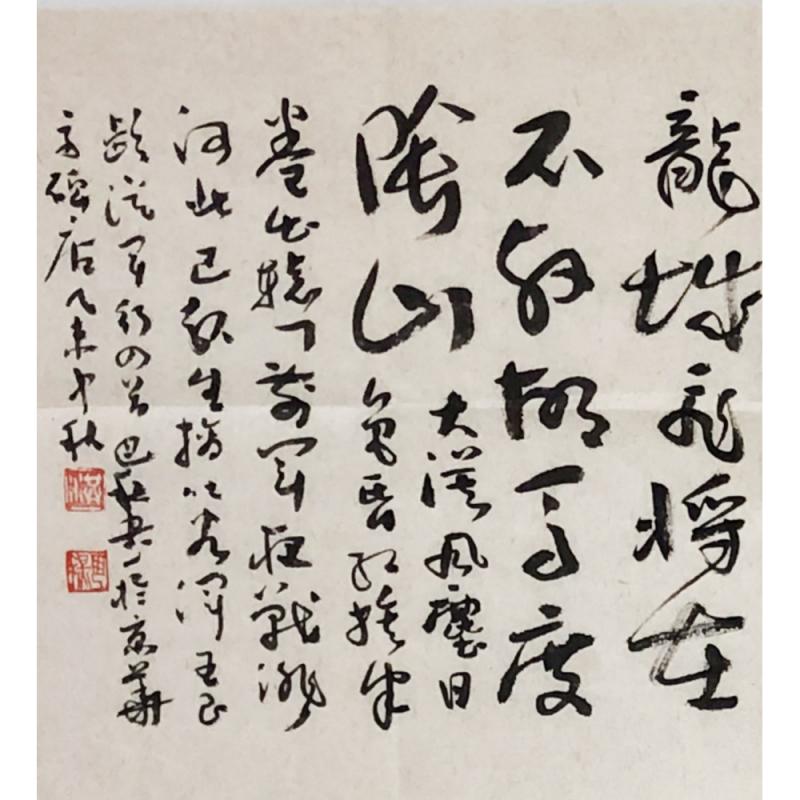 龍城飛将在
不教胡馬度
陰山
大漠風塵日
色昏紅旗半
卷出轅門前軍夜戰洮
河北已報生擒吐谷渾王昌
齡從軍行四首於京華
乙未中秋